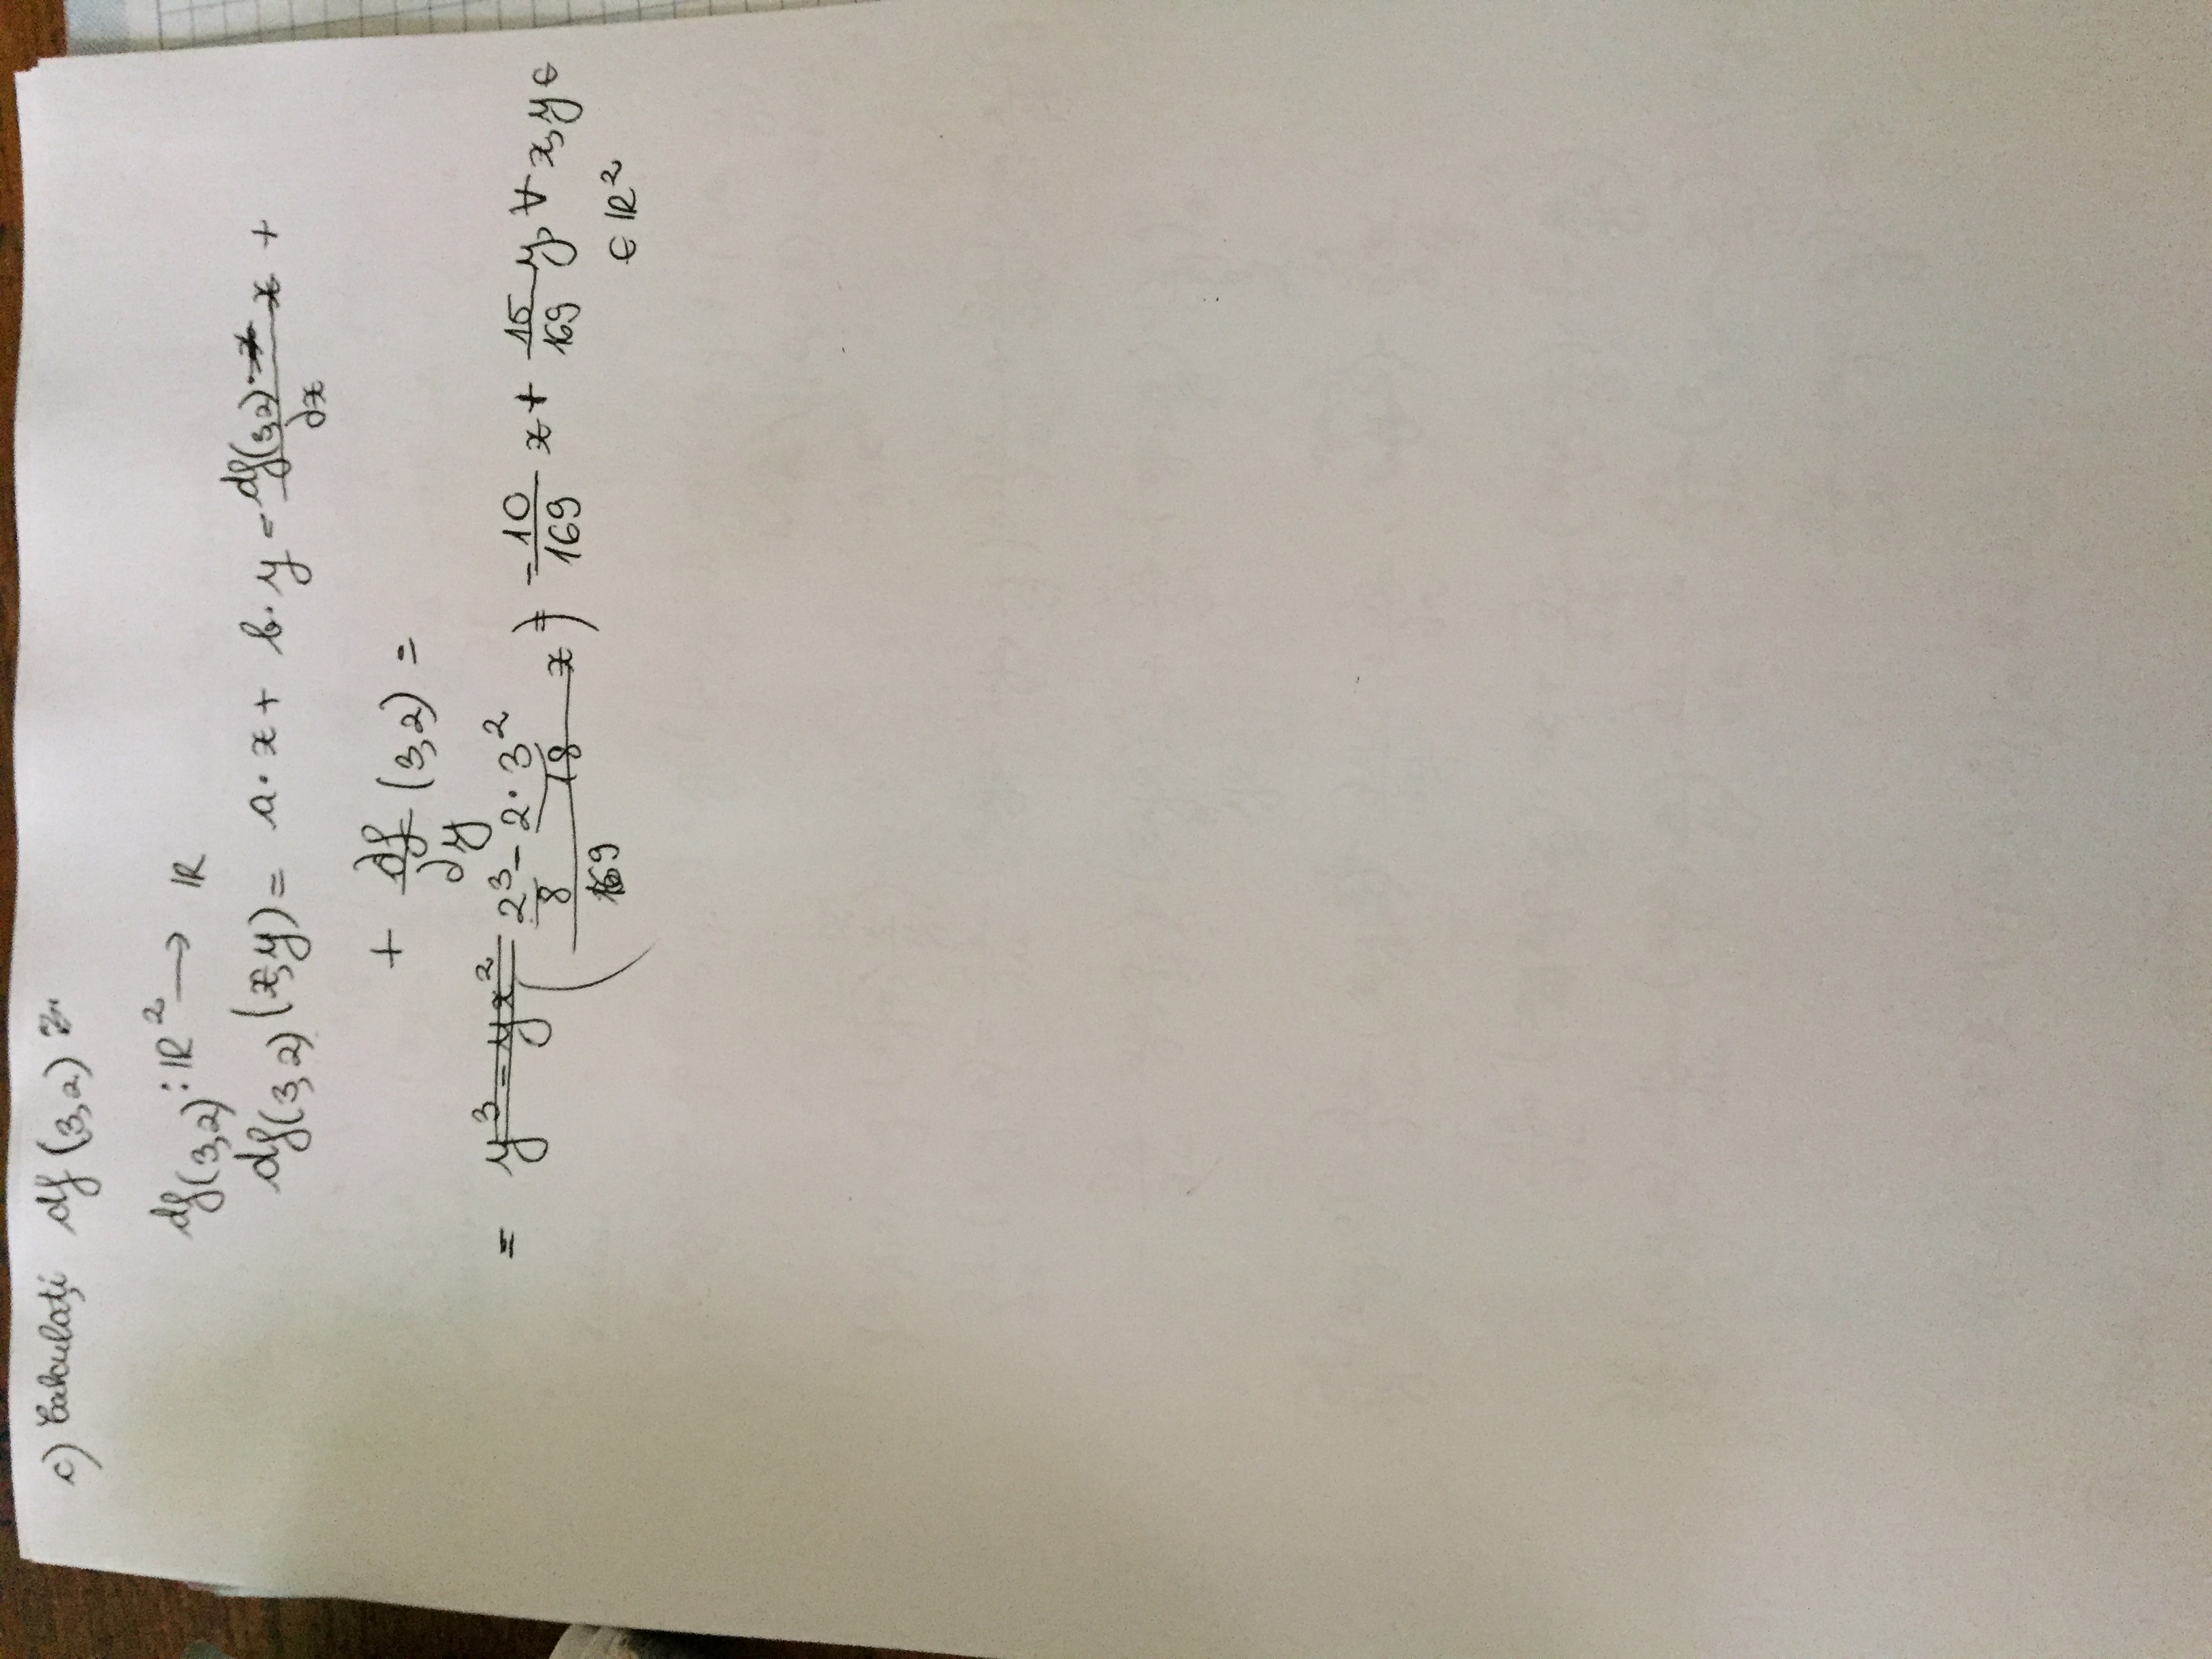 c) Calculați df(3,2)
df(3,2) : ℝ² → ℝ
df(3,2)(x,y) = a·x + b·y = df(3,2) x / ∂x +
+ ∂f/∂y (3,2) =
= y³ - yx² ( 2³ - 2·3² 8 18 x / 169 ) = -10/169 x + 15/169 y, ∀ x,y ∈
∈ ℝ²